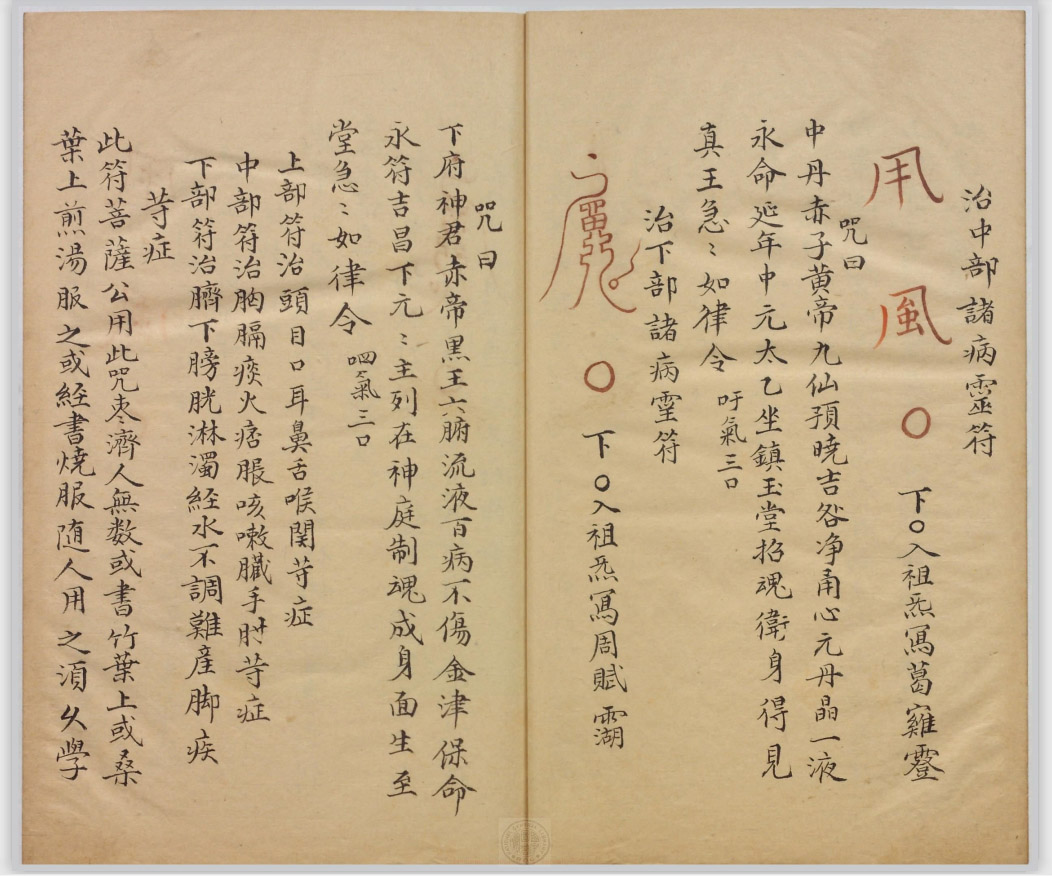 治中部諸病靈符
用風〇 下〇入祖炁寫葛雞霻
咒曰
中丹赤子黄帝九仙預曉吉咎净甬心元丹晶一液
永命延年中元太乙坐鎮玉堂招魂衛身得見
真王急〻如律令 吁氣三口
治下部諸病霊符
〇 下〇入祖炁寫周賦霩
咒曰
下府神君赤帝黒王六腑流液百病不傷金津保命
永符吉昌下元〻主列在神庭制魂成身面生至
堂急〻如律令 呬氣三口
上部符治頭目口耳鼻舌喉関苛症
中部符治胸膈痰火痞脹咳嗽臟手肘苛症
下部符治臍下膀胱淋濁経水不調難産脚疾
苛症
此符菩薩公用此咒枣濟人無数或書竹葉上或桑
葉上煎湯服之或経書燒服随人用之湏久學